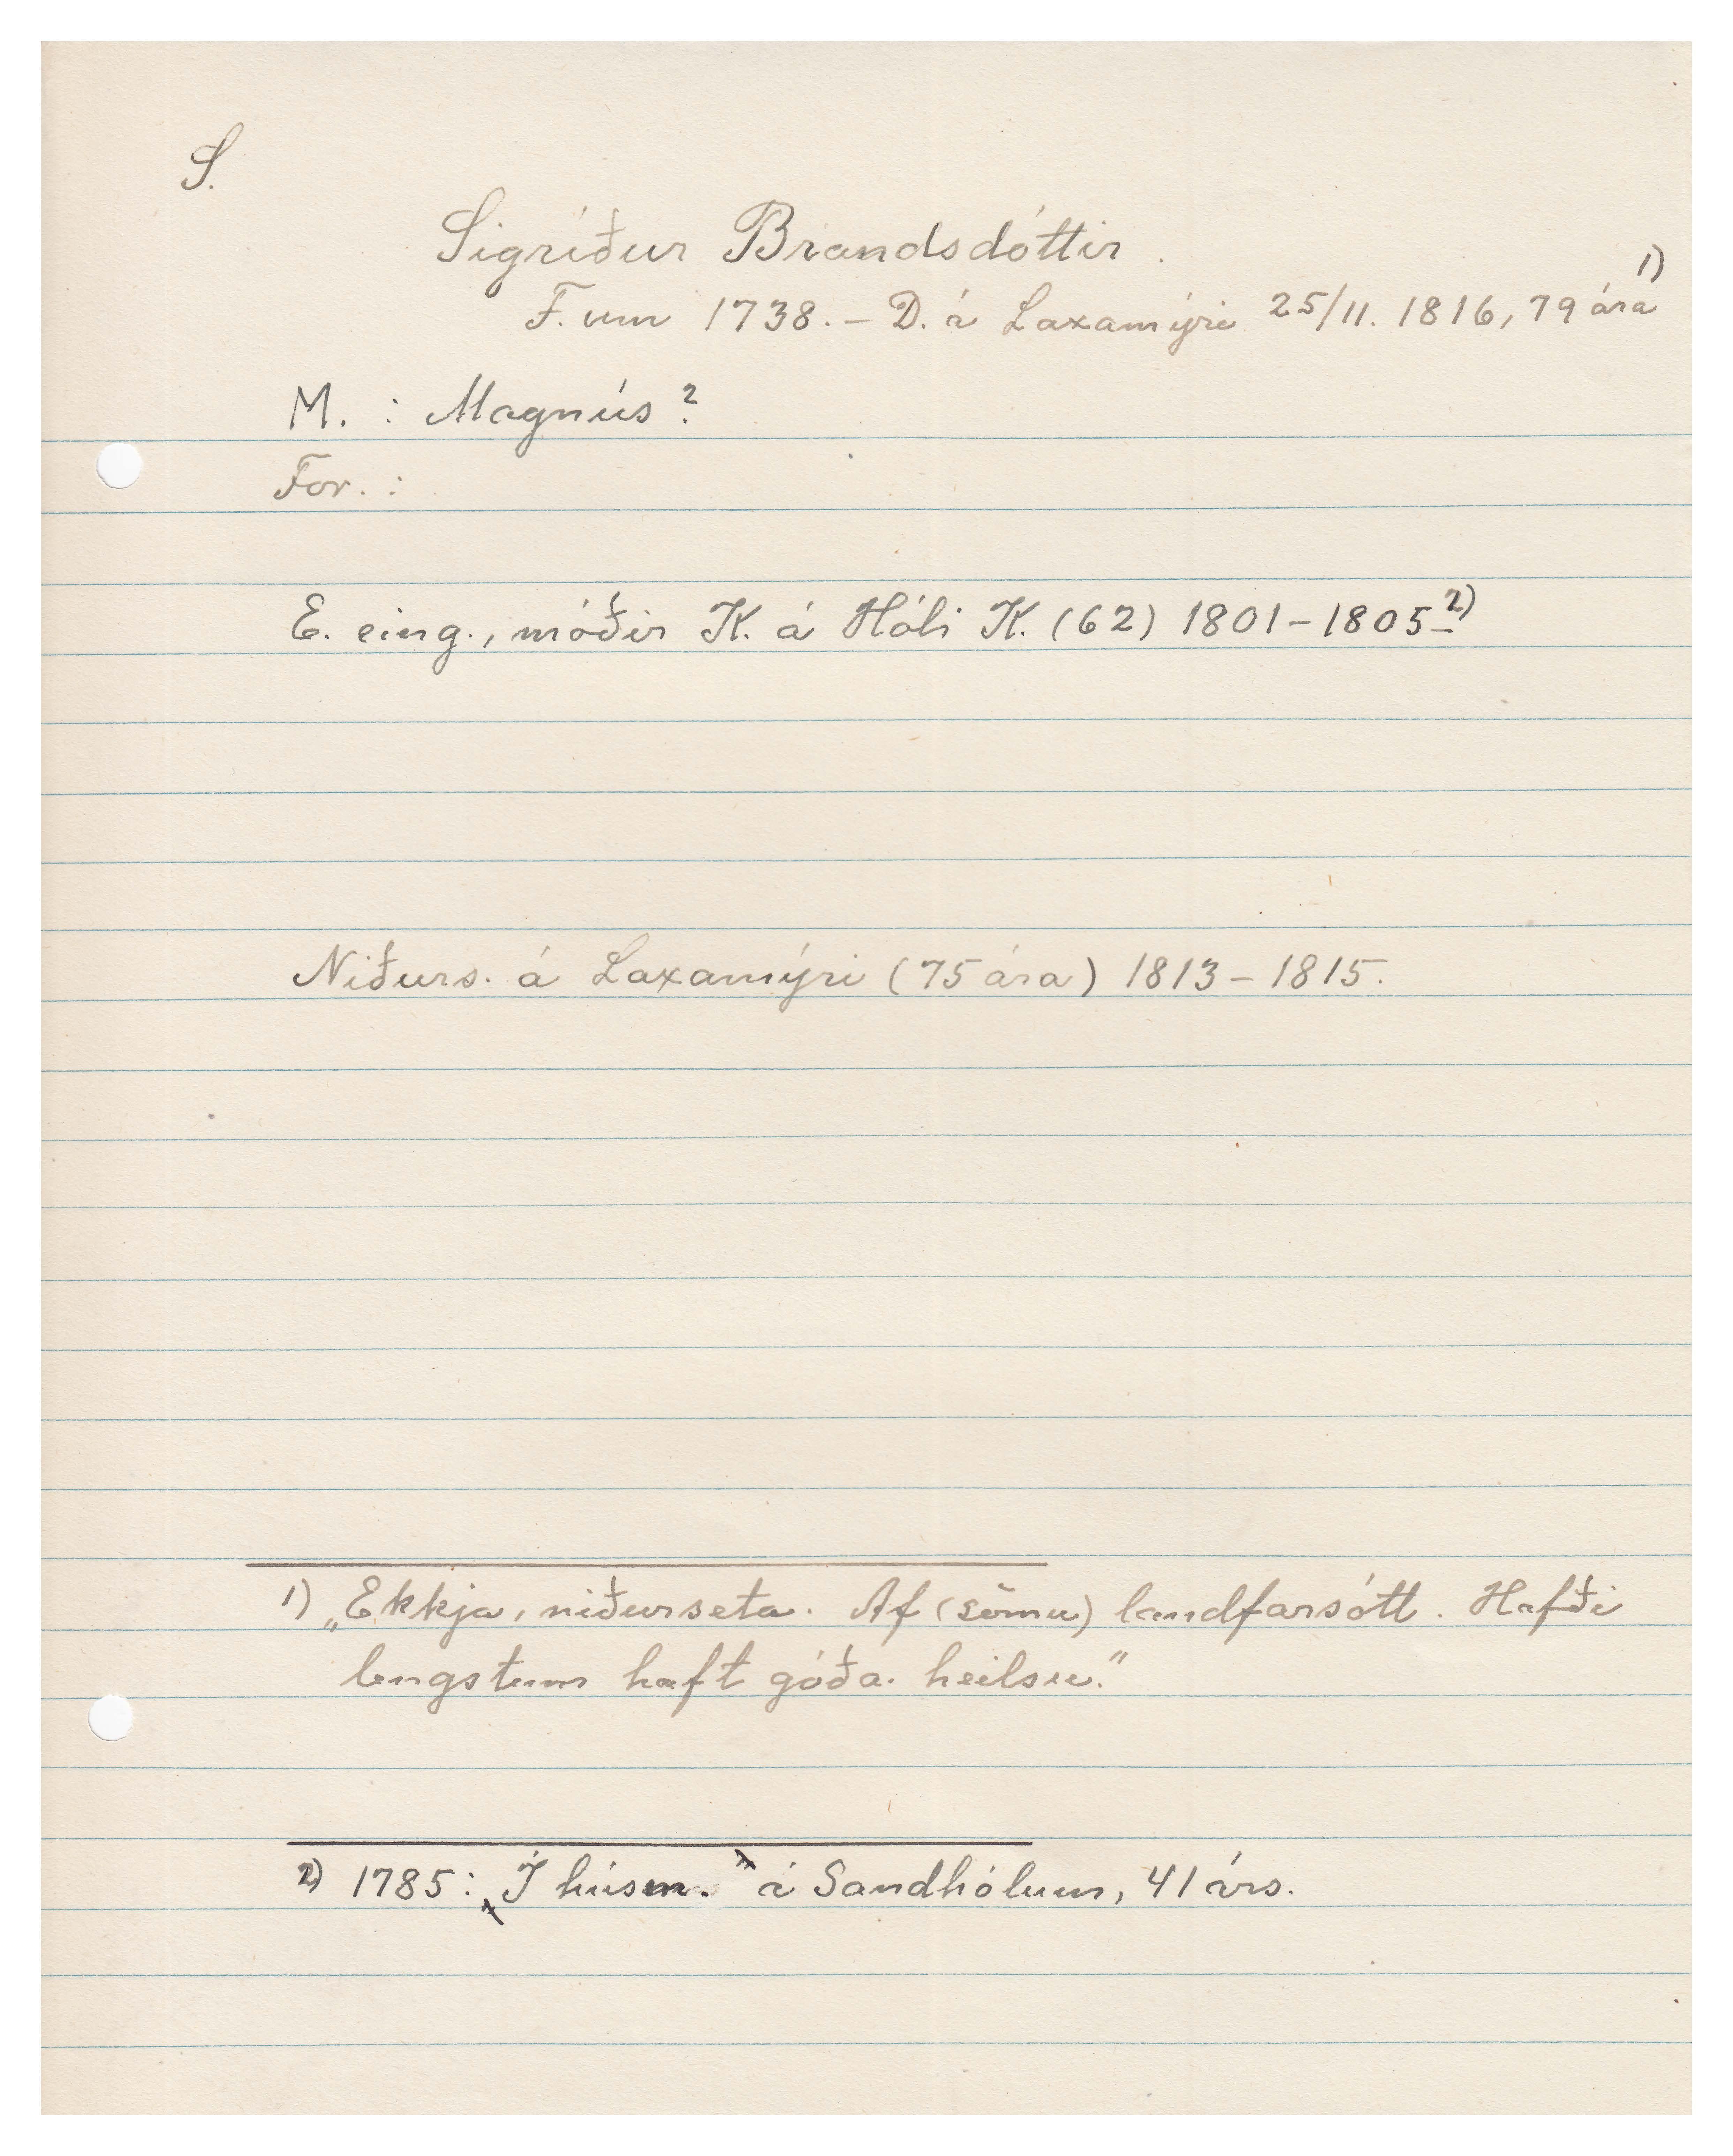 S.
Sigríður Brandsdóttir.
F. um 1738. – D. á Laxamýri 25/11. 1816, 79 ára 1)
M. : Magnús?
For. :
E. eing., móðir K. á Hóli K. (62) 1801 – 1805 2)
Niðurs. á Laxamýri (75 ára) 1813 – 1815.
1) „Ekkja, niðurseta. Af (sömu) landfarsótt. Hafði
lengstum haft góða heilsu."
2) 1785: „Í húsm." á Sandhólum, 41 árs.